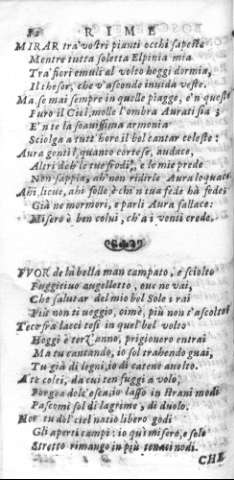 RIME
MIRAR tra vostri pianti occhi sapeste
Mentre tutta soletta Elpinia mia
Tra' fiori emuli al volto hoggi dormia,
Il thesor, che v'asconde invida veste.
Ma se mai sempre in quelle piagge, e'n queste
Furo il Ciel, molle l'ombra Aurati sia;
E'n te la soavissima armonia
Sciolga a tutt' hore il bel cantar celeste:
Aura gentil quanto cortese, audace,
Altri deh le tue frodi, e le mie prede
Non sappia, ah' non ridirle Aura loquace
Ahi lieue, ahi folle è chi n tua fede hà fede;
Già ne mormori, e parli Aura fallace:
Misero è ben colui, ch'a i venti crede.
FVOR de la bella man campato, e sciolto
Fuggitiuo augelletto, oue ne vai,
Che salutar del mio bel Sole i rai
Più non ti veggio, oimè, più non t'ascolto?
Teco fra lacci tesi in quel bel volto
Hoggi è terz'anno, prigioniero entrai
Ma tu cantando, io sol trahendo guai,
Tu già di legni, io di catene auolto.
A te colei, da cui ten fuggi a volo,
Porgea dolc'esca, io lasso in strani modi
Pascomi sol di lagrime, e di duolo.
Hor tu del ciel natio libero godi
Gli aperti campi: io qui misero, e solo
Stretto rimango in più tenaci nodi.
CHE